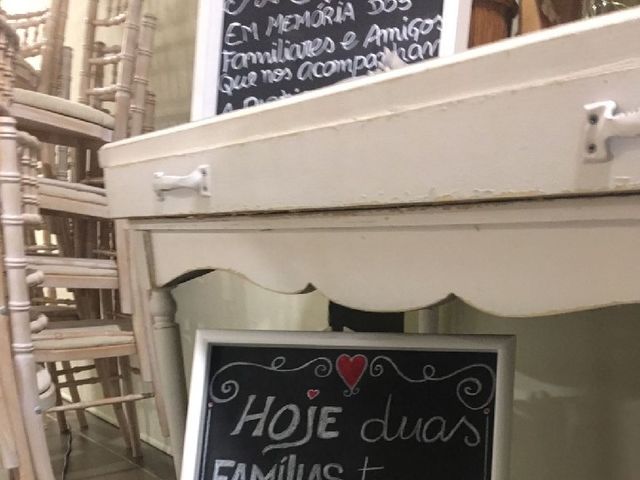 EM MEMÓRIA DOS
Familiares e Amigos
que nos acompanham
HOJE duas
FAMÍLIAS